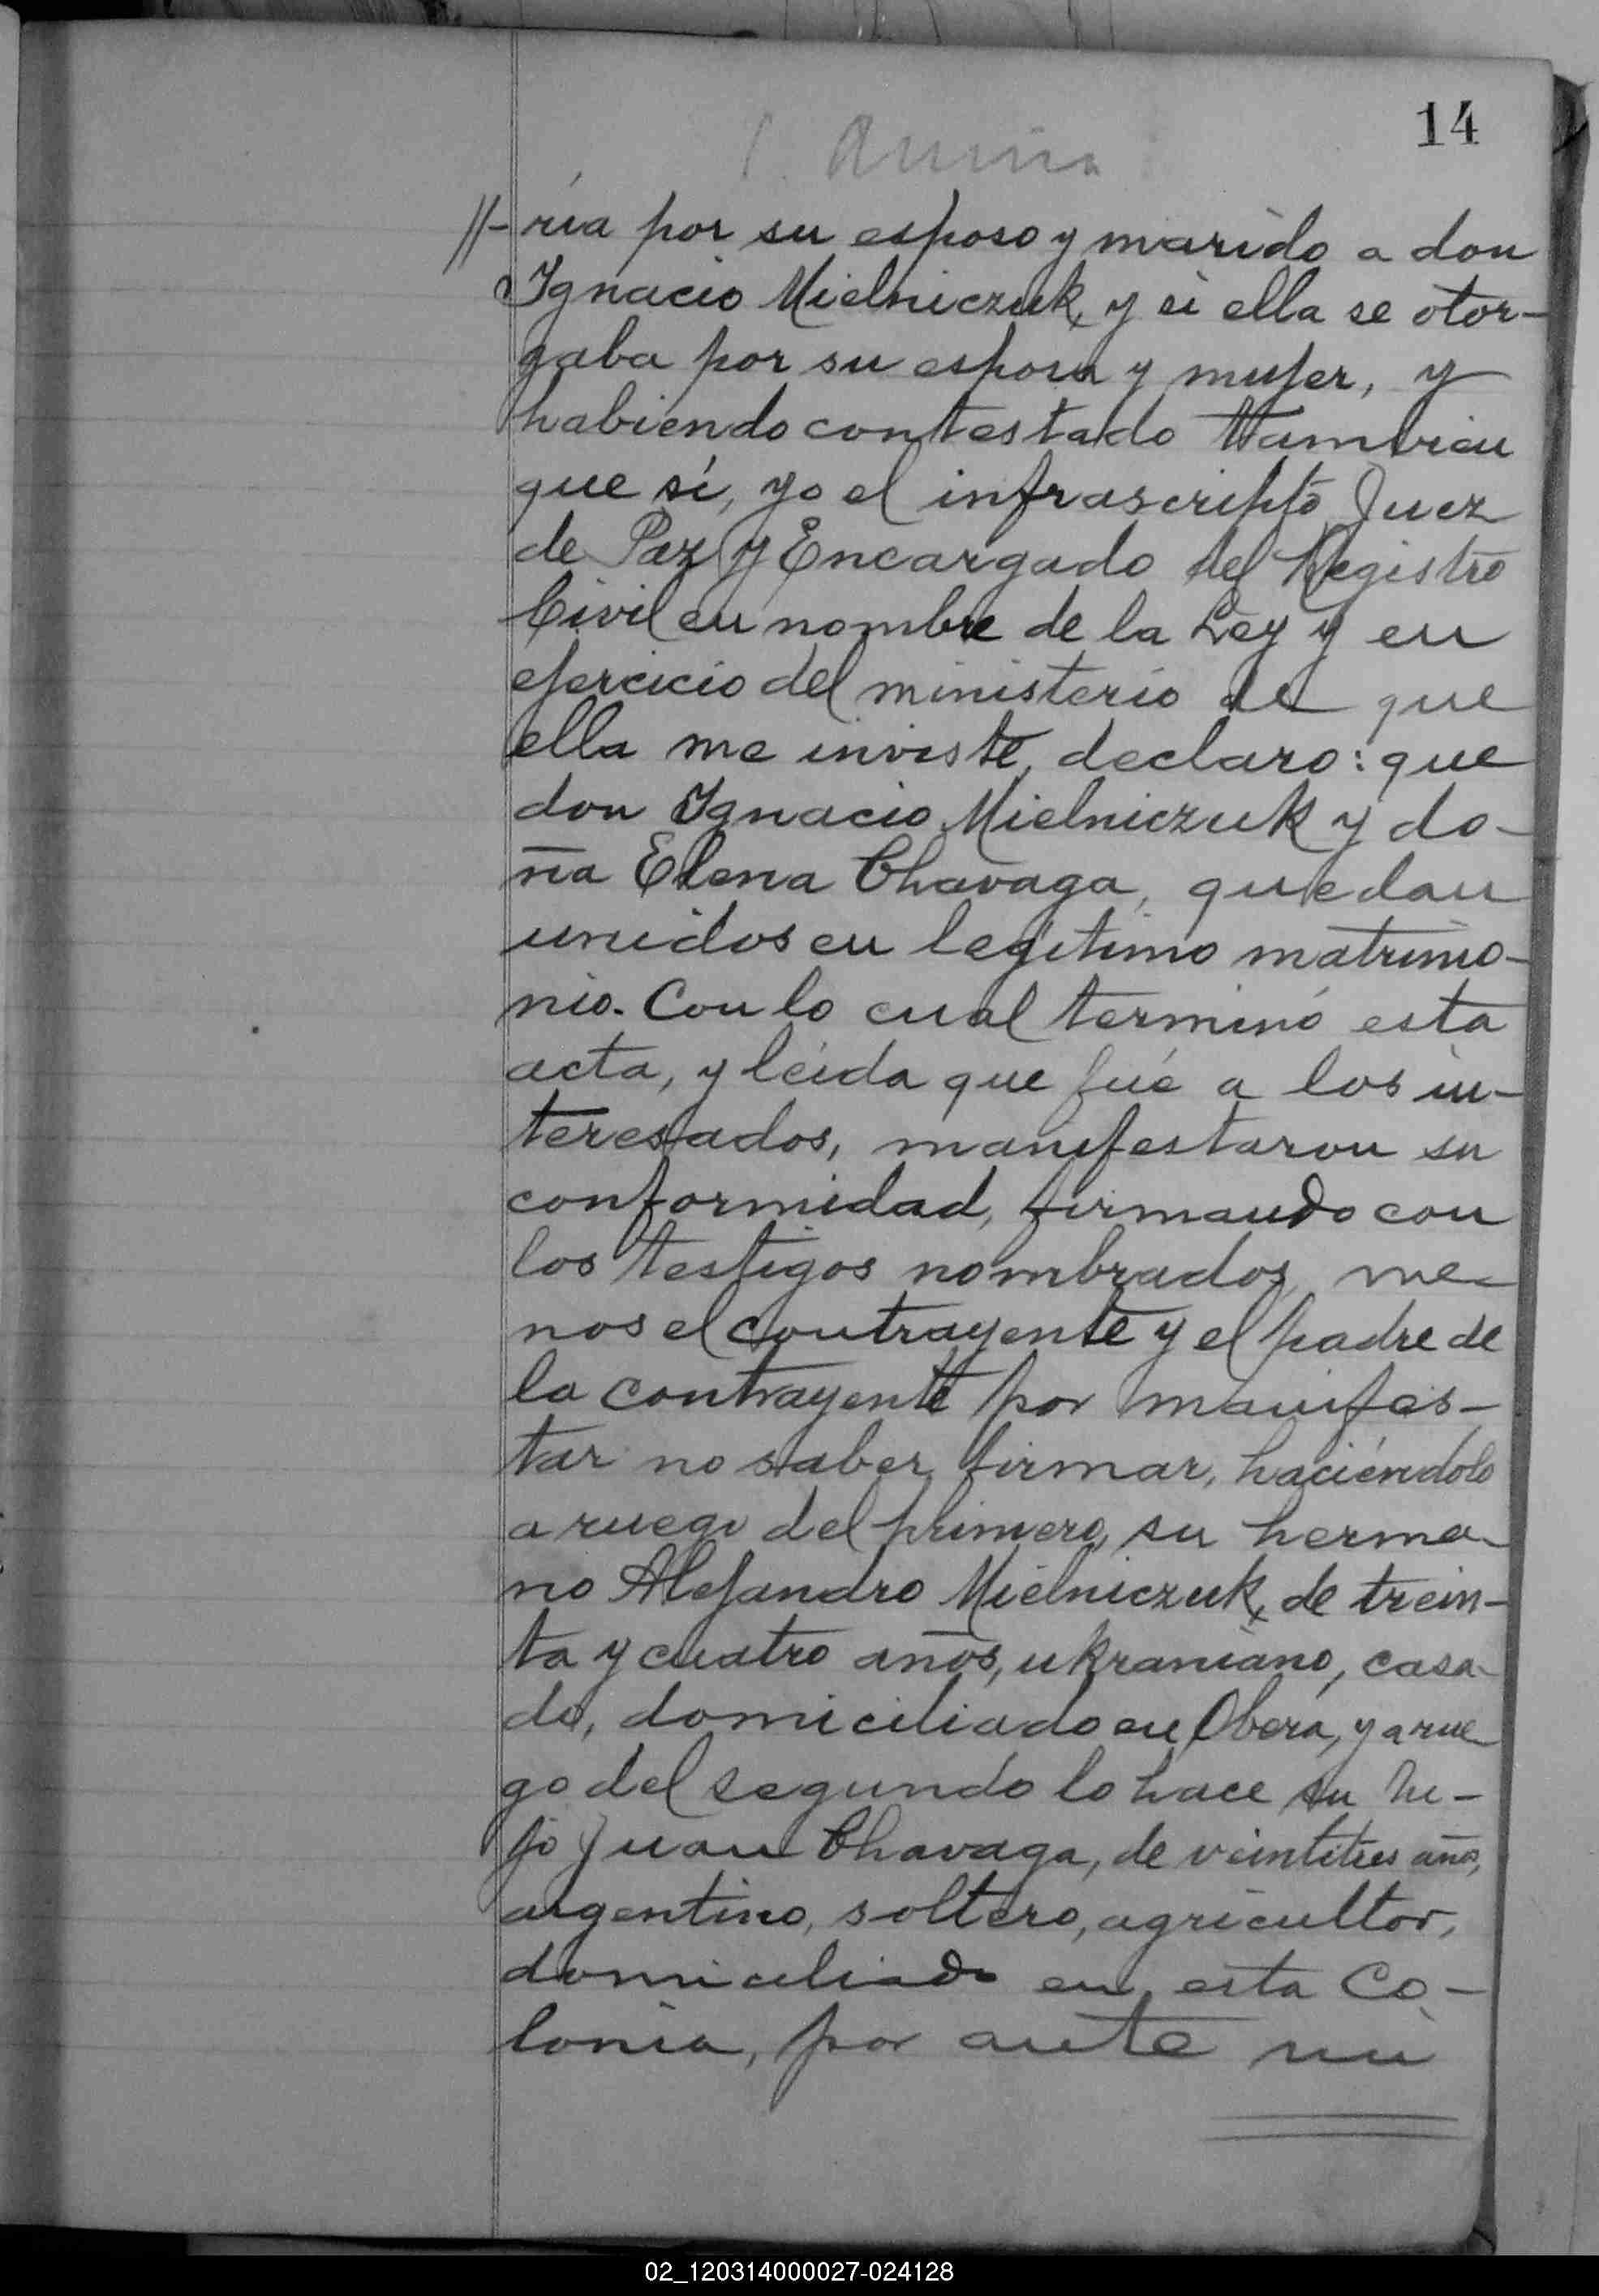 14
//-ría por su esposo y marido a don
Ignacio Mielniczuk, y si ella se otor-
gaba por su esposa y mujer, y
habiendo contestado tambien
que sí, yo el infrascripto Juez
de Paz y Encargado del Registro
Civil en nombre de la Ley y en
ejercicio del ministerio de que
ella me inviste, declaro: que
don Ignacio Mielniczuk y do-
ña Elena Chavaga, quedan
unidos en legítimo matrimo-
nio. Con lo cual terminó esta
acta, y leída que fué a los in-
teresados, manifestaron su
conformidad, firmando con
los testigos nombrados, me-
nos el contrayente y el padre de
la contrayente por manifes-
tar no saber firmar, haciéndolo
a ruego del primero, su herma-
no Alejandro Mielniczuk, de trein-
ta y cuatro años, ukraniano, casa-
do, domiciliado en Oberá, y a rue-
go del segundo lo hace su hi-
jo Juan Chavaga, de veintitres años,
argentino, soltero, agricultor,
domiciliado en esta Co-
lonia, por ante mi
02_120314000027-024128